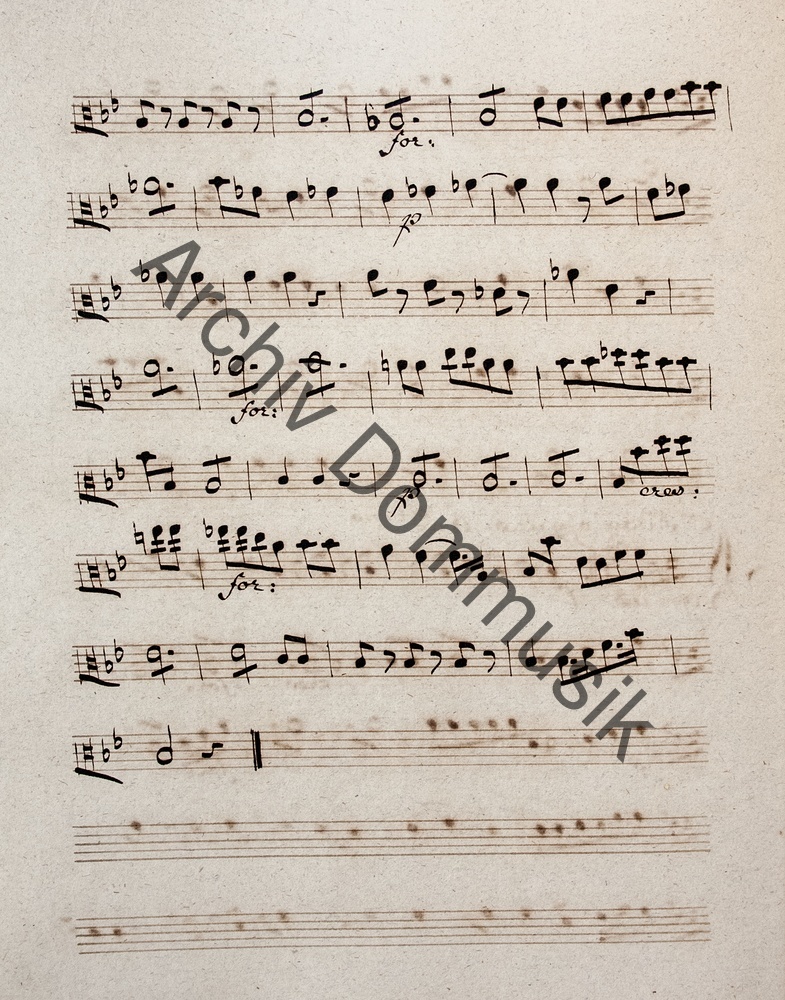 for:
p
for:
p
cres:
for:
Archiv Dommusik